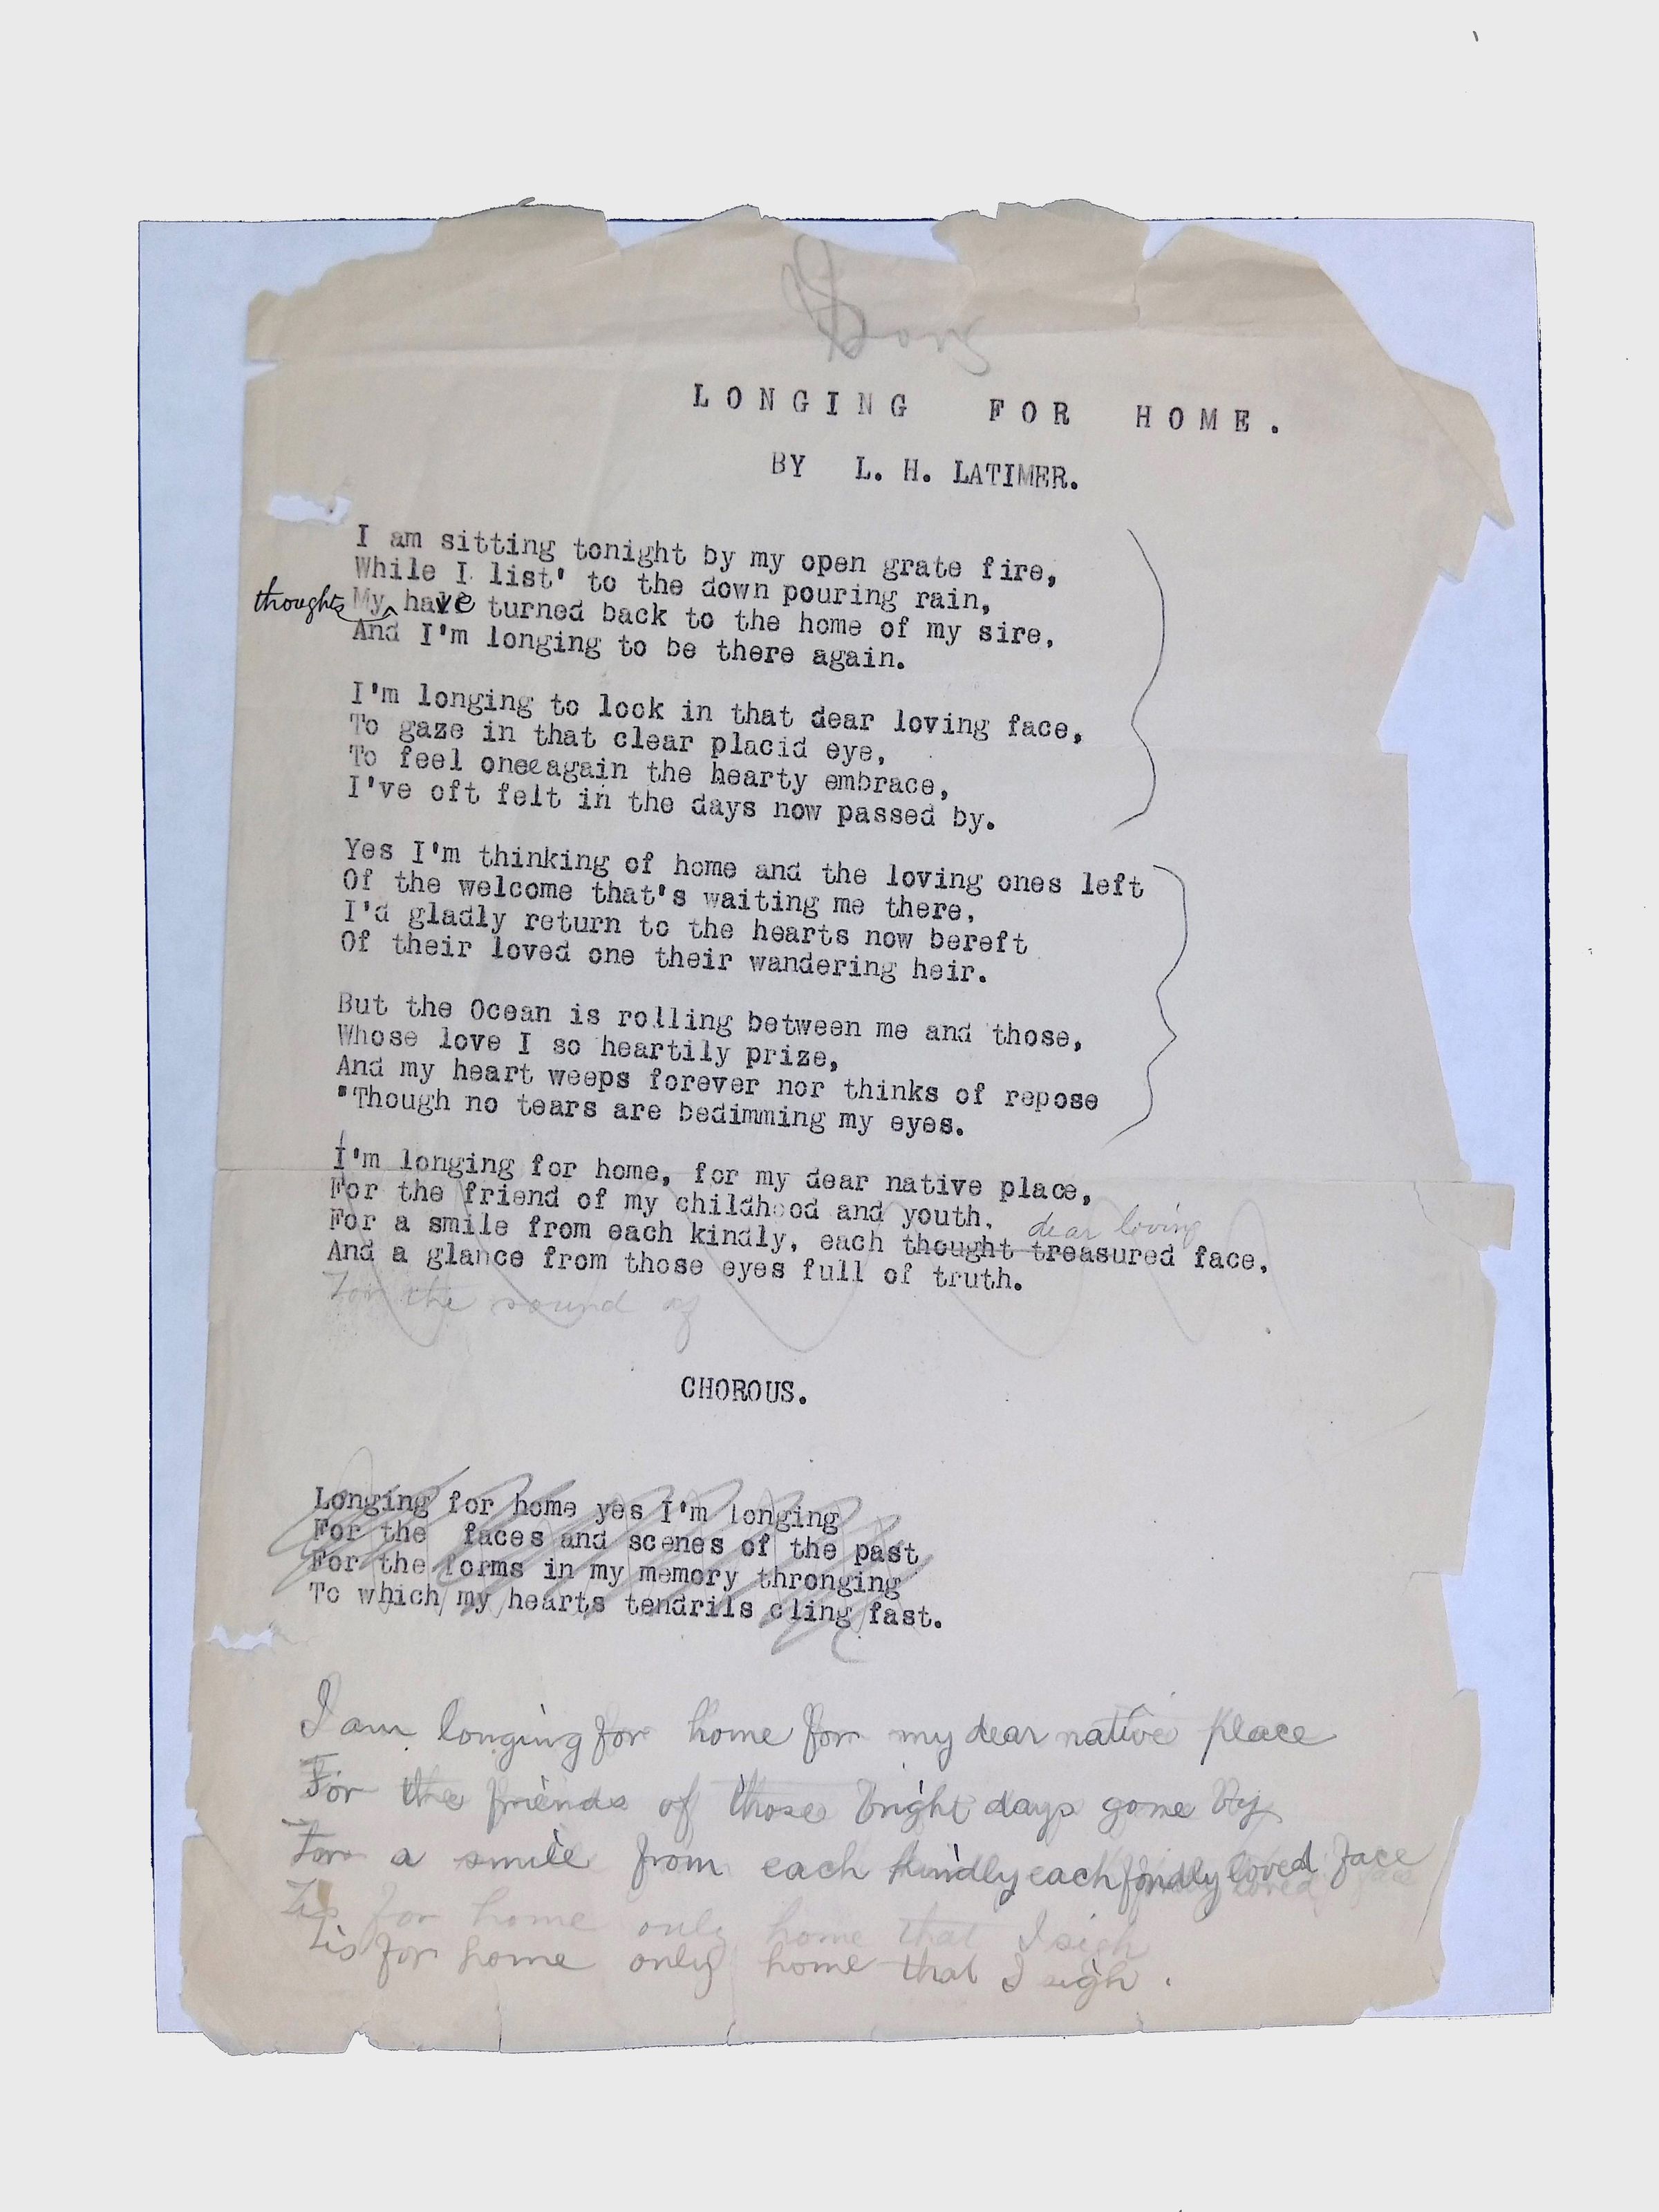 Song
LONGING FOR HOME.
BY L. H. LATIMER.
I am sitting tonight by my open grate fire,
While I list' to the down pouring rain,
My thoughts have turned back to the home of my sire,
And I'm longing to be there again.
I'm longing to look in that dear loving face,
To gaze in that clear placid eye,
To feel once again the hearty embrace,
I've oft felt in the days now passed by.
Yes I'm thinking of home and the loving ones left
Of the welcome that's waiting me there,
I'd gladly return to the hearts now bereft
Of their loved one their wandering heir.
But the Ocean is rolling between me and those,
Whose love I so heartily prize,
And my heart weeps forever nor thinks of repose
'Though no tears are bedimming my eyes.
I'm longing for home, for my dear native place,
For the friend of my childhood and youth,
dear loving
For a smile from each kindly, each thought treasured face,
And a glance from those eyes full of truth.
For the sound of
CHOROUS.
Longing for home yes I'm longing
For the faces and scenes of the past
For the forms in my memory thronging
To which my hearts tendrils cling fast.
I am longing for home for my dear native place
For the friends of those bright days gone by
For a smile from each kindly each fondly loved face
Tis for home only home that I sigh
tis for home only home that I sigh.